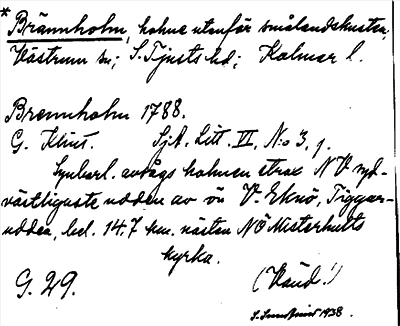 * Brännholm, holme utanför smålandskusten,
Västrum sn; S. Tjusts hd; Kalmar l.
Brennholm 1788.
G. Klint. Sjk. Litt. VI, N:o 3, 1.
Synbarl. avsågs holmen strax NV syd-
västligaste udden av ön V. Eknö, Tiggar-
udden, bel. 14,7 km. nästan NÖ Misterhults
kyrka.
G. 29. (Känd!)
1938.